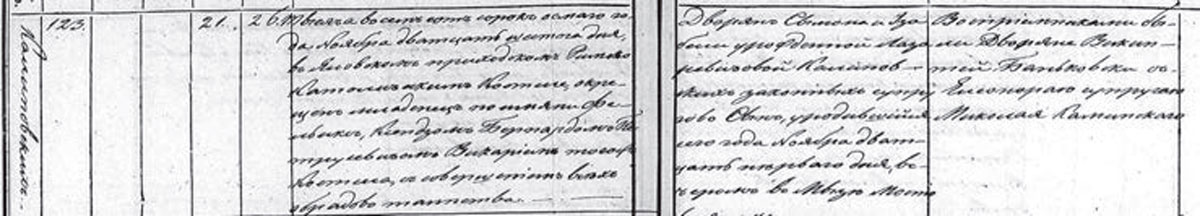 Калиновский
123.
21.
26.
Тысяча восемь сотъ сорокъ осмаго го-
да Ноября двадцать шестого дня,
въ приходскомъ Римско
Католическомъ Костеле, окре-
щенъ младенецъ именами Фе-
ликсъ, Ксендзомъ Бернардомъ Пе-
трусевичомъ Викаріемъ тогожъ
Костела, съ совершеніемъ всѣхъ
обрядовъ таинства.
Дворянъ Семена и Иза
беллы урожденной Лаза
ревичовой Калинов-
скихъ законныхъ супру
говъ Сынъ, родившійся
сего года Ноября двад-
цать перваго дня, ве-
черомъ въ
Воспріемниками бы-
ли Дворяне Викен-
тій Баньковскій съ
Елеонорою супругою
Николая Каминскаго